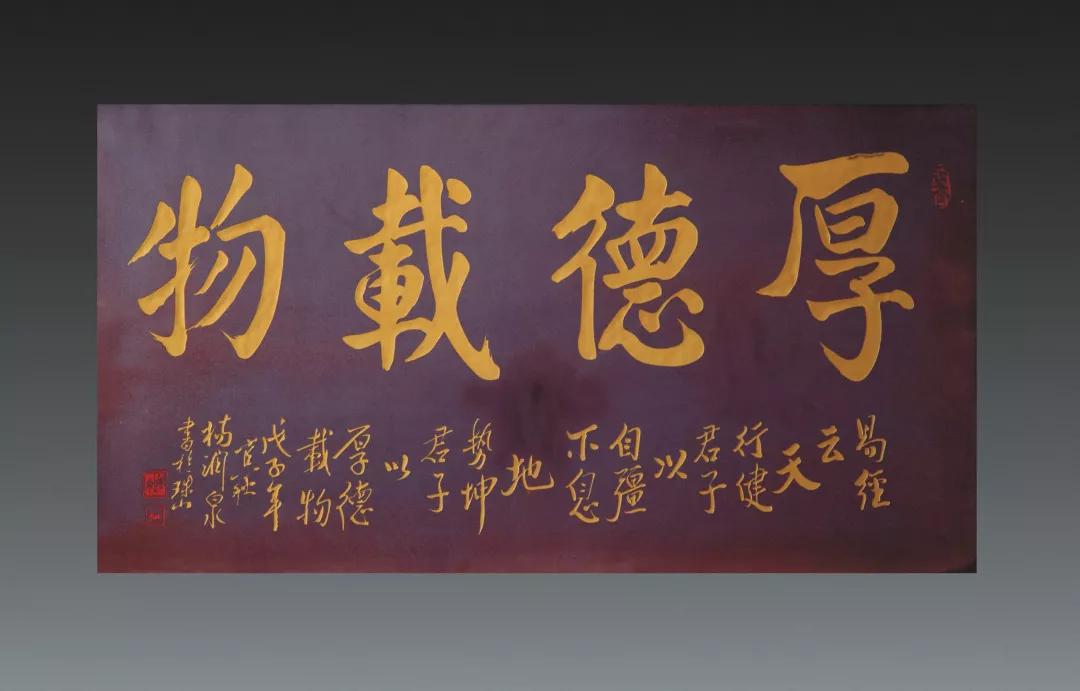 厚德載物
易經
云
天
行健
君子
以
自彊
不息
地
勢坤
君子
以
厚德
載物
戊子年
宮秋
楊潤泉
書於珠山